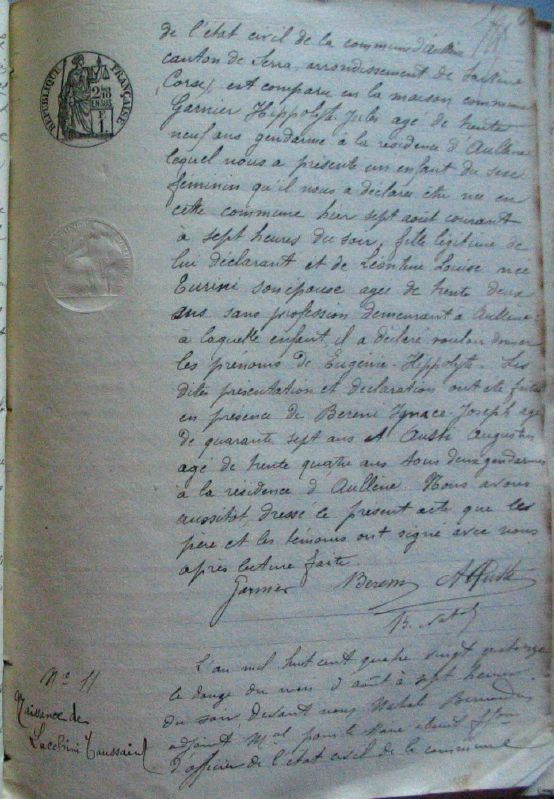 RÉPUBLIQUE FRANÇAISE
de l'état civil de la commune d'Aullène
canton de Serra, arrondissement de Sartène
Corse, est comparu en la maison commune
Garnier Hippolyte Jules agé de trente
neuf ans gendarme à la résidence d'Aullène
lequel nous a présenté un enfant du sexe
féminin qu'il nous a déclaré être née en
cette commune hier sept août courant
à sept heures du soir, fille légitime de
lui déclarant et de Léontine Louise née
son épouse agée de trente deux
ans sans profession demeurant à Aullène
à laquelle enfant il a déclaré vouloir donner
les prénoms de Eugénie-Hippolyte. Les
dites présentation et déclaration ont été faites
en présence de Bereni Ignace-Joseph agé
de quarante sept ans et Augustin
agé de trente quatre ans tous deux gendarmes
à la résidence d'Aullène. Nous avons
aussitôt dressé le présent acte que les
père et les témoins ont signé avec nous
après lecture faite.
Garnier Bereni
L'an mil huit cent quatre vingt quatorze
le douze du mois d'août à sept heures
du soir devant nous
adjoint Mal pour le Maire
d'officier de l'état civil de la commune
N° 11
Naissance de
Lucchini Toussaint